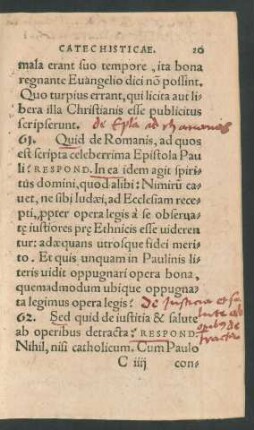 CATECHISTICAE. 20
mala erant suo tempore, ita bona
regnante Euangelio dici nō possint.
Quo turpius errant, qui licita aut li-
bera illa Christianis esse publicitus
scripserunt. de Epla ad rhomanos
61. Quid de Romanis, ad quos
est scripta celeberrima Epistola Pau
li? RESPOND. In ea idem agit spiri-
tus domini, quod alibi: Nimirū ca-
uet, ne sibi Iudæi, ad Ecclesiam rece
pti, ꝓpter opera legis à se obserua-
tę iustiores prę Ethnicis esse uideren
tur: adæquans utrosque fidei meri-
to. Et quis unquam in Paulinis li-
teris uidit oppugnari opera bona,
quemadmodum ubique oppugna-
ta legimus opera legis?
De Iusticia et sa
lute ab
operibus de
tracta
62. Sed quid de iustitia & salute
ab operibus detracta? RESPOND.
Nihil, nisi catholicum. Cum Paulo
C iiij con-